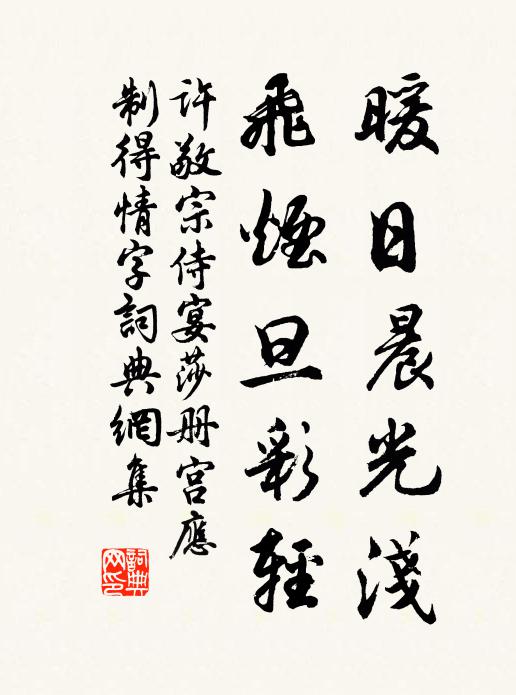 暖日晨光淺
飛煙旦彩輕
許敬宗侍宴莎册宮應
制得情字詞典網集
詞典网印